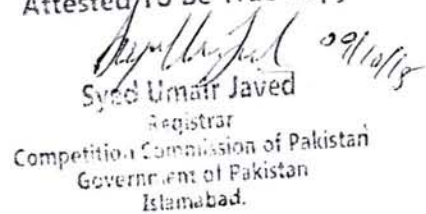 Attested To Be True Copy
09/10/15
Syed Umair Javed
Registrar
Competition Commission of Pakistan
Government of Pakistan
Islamabad.